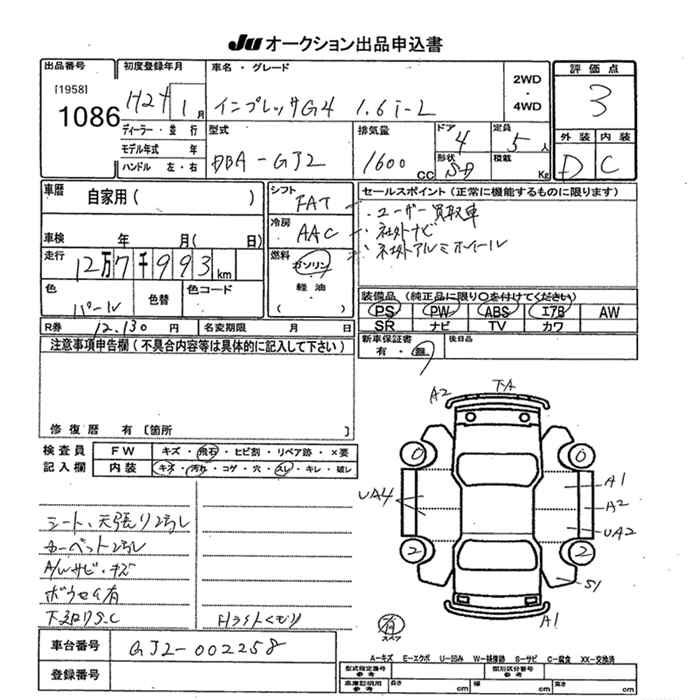 JU オークション出品申込書
出品番号
[1958]
1086
初度登録年月
H24 1 月
ディーラー・並行
モデル年式 年
ハンドル 左・右
車名・グレード
インプレッサG4 1.6i-L
2WD
・
4WD
型式
DBA-GJ2
排気量
1600 CC
ドア
4
形状
SD
定員
5 人
積載
Kg
評価点
3
外装 内装
D C
車歴
自家用( )
車検 年 月( 日)
走行
12万7千993 km
色
パール
色替
色コード
R券 12,130 円
名変期限 月 日
シフト
FAT
冷房
AAC
燃料
ガソリン
・
軽油
( )
セールスポイント(正常に機能するものに限ります)
・ユーザー買取車
・社外ナビ
・社外アルミホイール
装備品(純正品に限り○を付けてください)
PS PW ABS エアB AW
SR ナビ TV カワ
新車保証書
有・無
後日品
注意事項申告欄(不具合内容等は具体的に記入して下さい)
修復歴 有〔箇所 〕
検査員
記入欄
FW キズ・飛石・ヒビ割・リペア跡・×要
内装 キズ・汚れ・コゲ・穴・スレ・キレ・破レ
シート、天張り汚レ
カーペット汚レ
A/Wサビ・キズ
下廻りS.C
Hライトくもり
A2 TA
0 0
A1
UA4
A2
UA2
2 2
S1
A1
スペア
A-キズ E-エクボ U-凹み W-補修跡 S-サビ C-腐食 XX-交換済
車台番号 GJ2-002258
登録番号
型式指定番号
参考
類別区分番号
参考
車庫証明用
参考
長さ cm 幅 cm 高さ cm